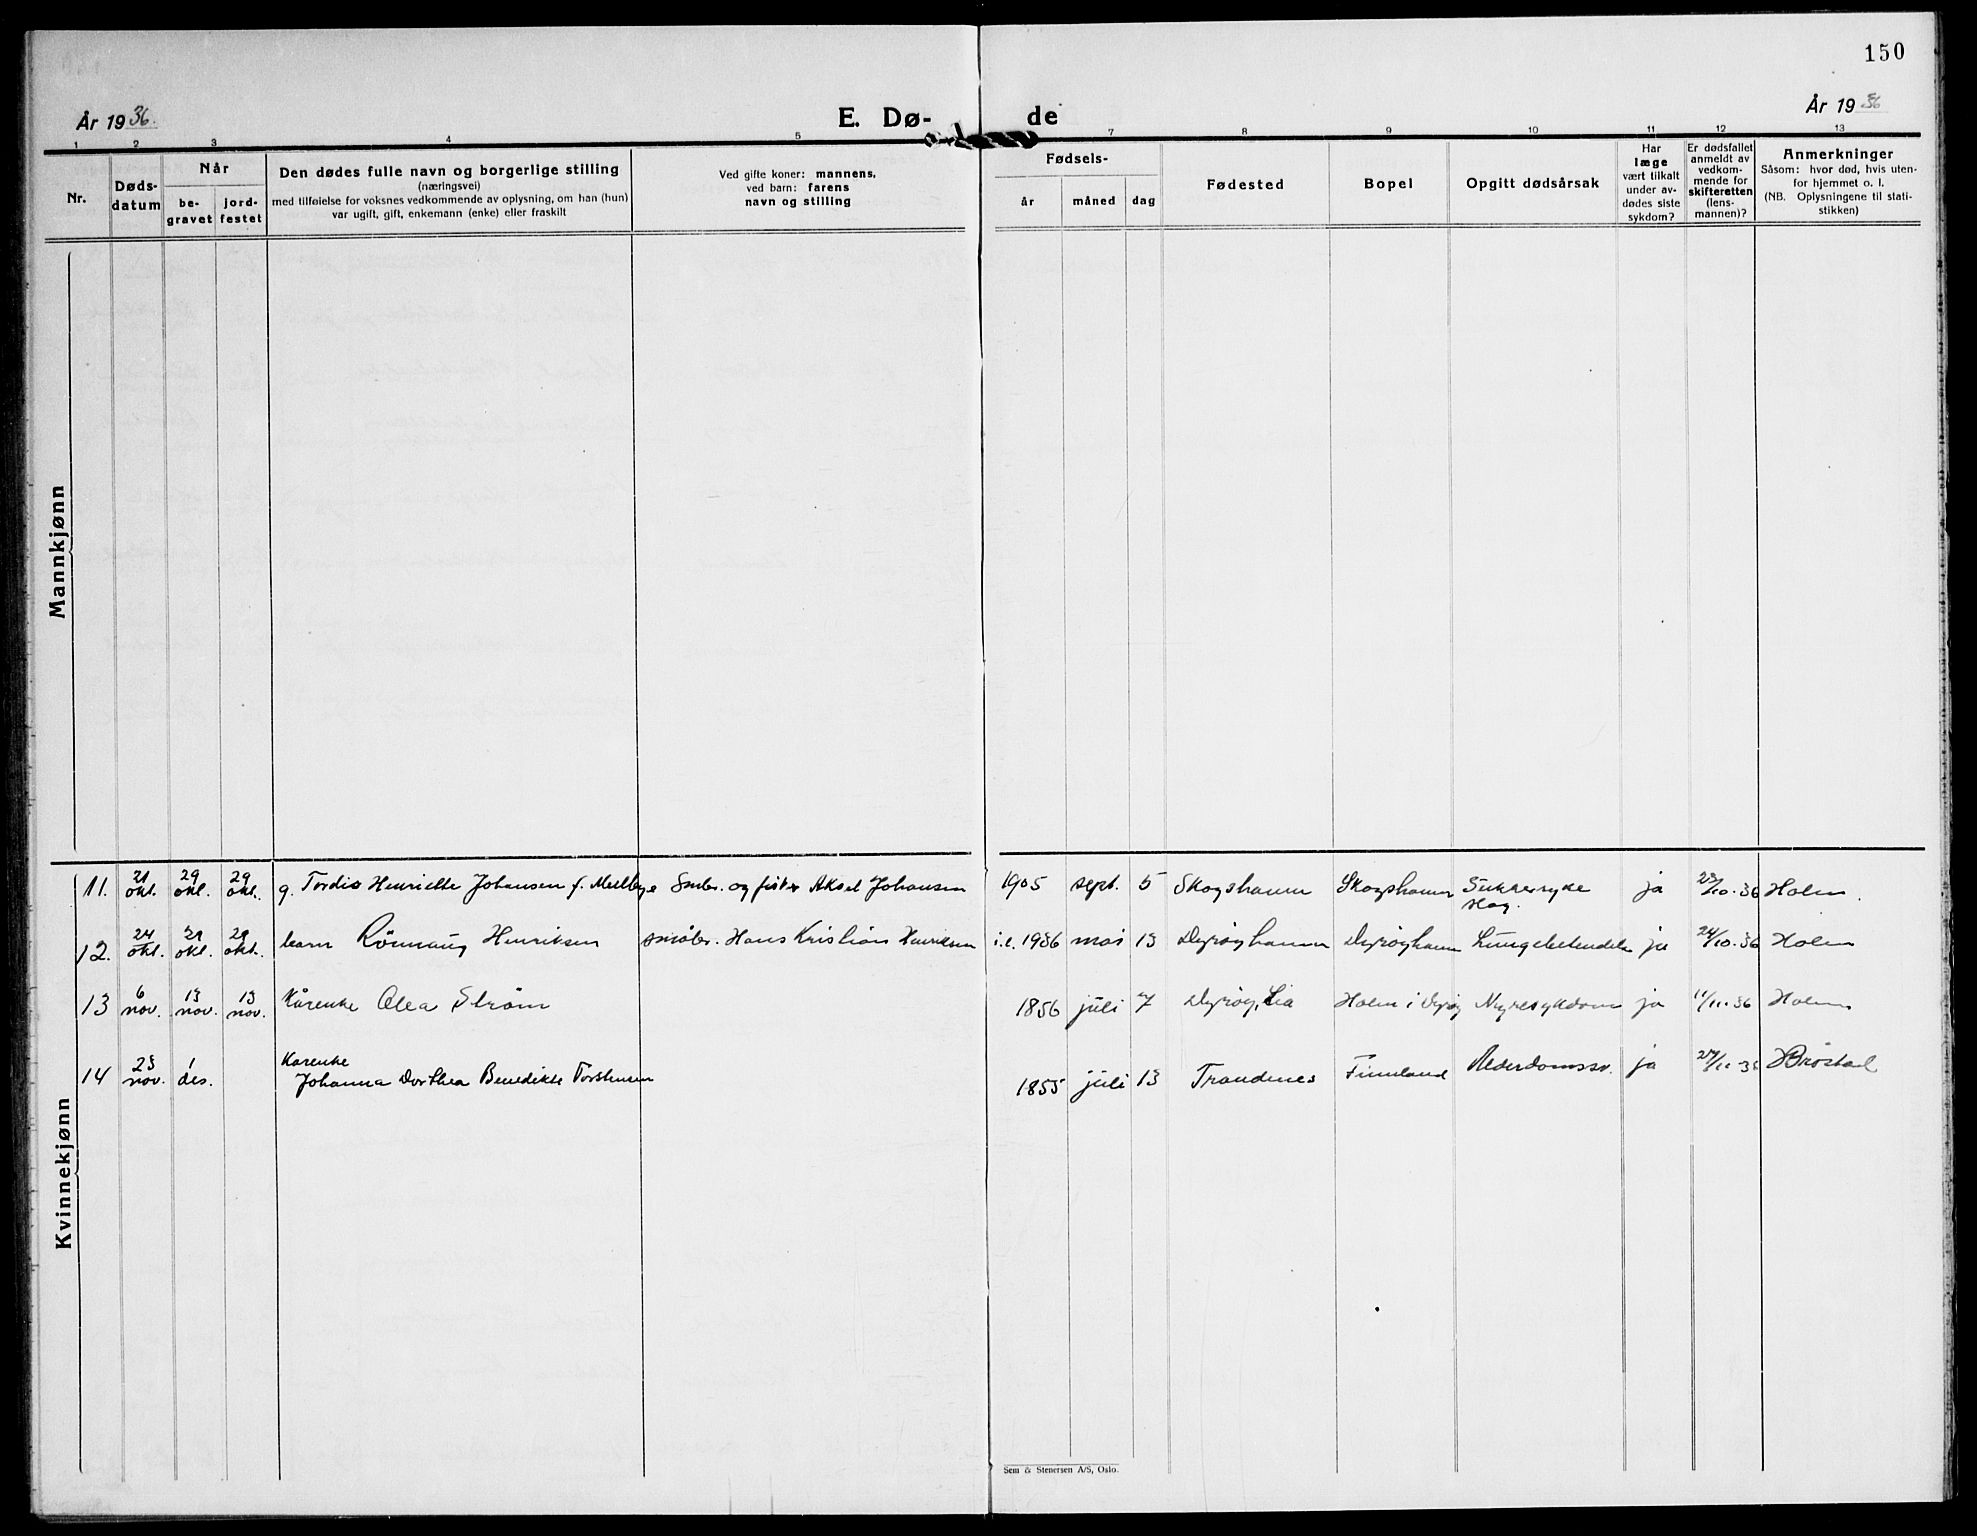 150
År 1936.
E. Dø-
de
År 1936
1 2 3 4 5 7 8 9 10 11 12 13
Nr.
Døds-
datum
Når
be-
gravet
jord-
festet
Den dødes fulle navn og borgerlige stilling
(næringsvei)
med tilføielse for voksnes vedkommende av oplysning, om han (hun)
var ugift, gift, enkemann (enke) eller fraskilt
Ved gifte koner: mannens,
ved barn: farens
navn og stilling
Fødsels-
år
måned
dag
Fødested
Bopel
Opgitt dødsårsak
Har
læge
vært tilkalt
under av-
dødes siste
sykdom?
Er dødsfallet
anmeldt av
vedkom-
mende for
skifteretten
(lens-
mannen)?
Anmerkninger
Såsom: hvor død, hvis uten-
for hjemmet o. l.
(NB. Oplysningene til stati-
stikken)
Mannkjønn
Kvinnekjønn
11. 21 okt. 29 okt. 29 okt. g. Tordis Henriette Johansen f. Mellbye Smbr. og fisker Aksel Johansen 1905 sept. 5 Skogshamn Skogshamn Sukkersyke ja 23/10-36 Holm
12. 24 okt. 29 okt. 29 okt. barn Rönnaug Henriksen småbr. Hans Kristian Henriksen i.e. 1936 mai 13 Dyröyhamn Dyröyhamn Lungebetendelse ja 24/10-36 Holm
13 6 nov. 13 nov. 13 nov. Kårenke Olea Strøm 1856 juli 7 Dyröy, Lia Holm i Dyröy Nyresykdom ja 11/11-36 Holm
14 23 nov. 1 des. Karenke
Johanna Dorthea Benedikte Torstensen 1855 juli 13 Trondenes Finnland Alderdomssv. ja 27/11-36 Brøstad
Sem & Stenersen A/S, Oslo.